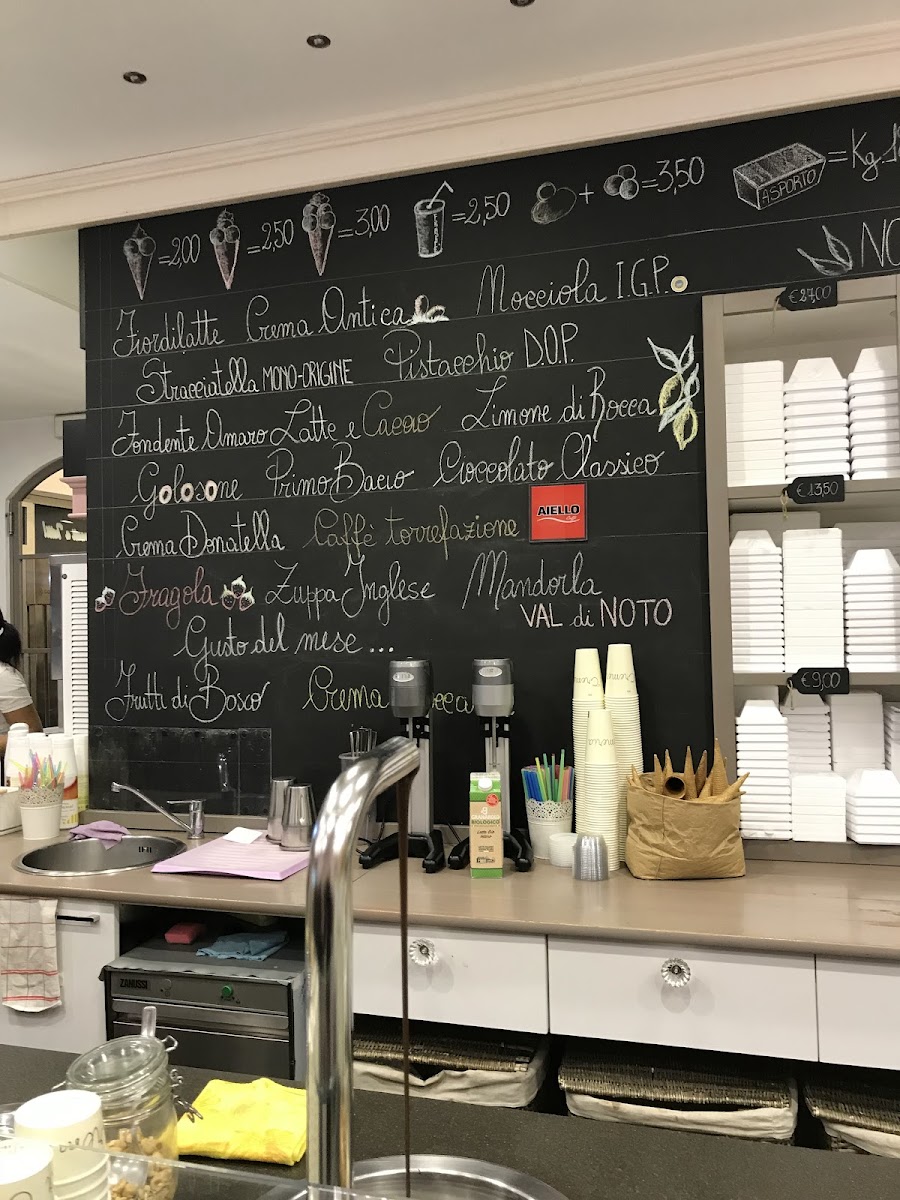 =2,00 =2,50 =3,00 =2,50 + =3,50 ASPORTO =Kg.
€27,00
Fiordilatte Crema Antica Nocciola I.G.P.
Stracciatella MONO-ORIGINE Pistacchio D.O.P.
Fondente Amaro Latte e Cacao Limone di Rocca
Golosone Primo Bacio Cioccolato Classico
€13,50
AIELLO
Caffè
Crema Donatella Caffè torrefazione
Fragola Zuppa Inglese Mandorla
VAL di NOTO
Gusto del mese...
€9,00
Frutti di Bosco Crema
BIOLOGICO
ZANUSSI